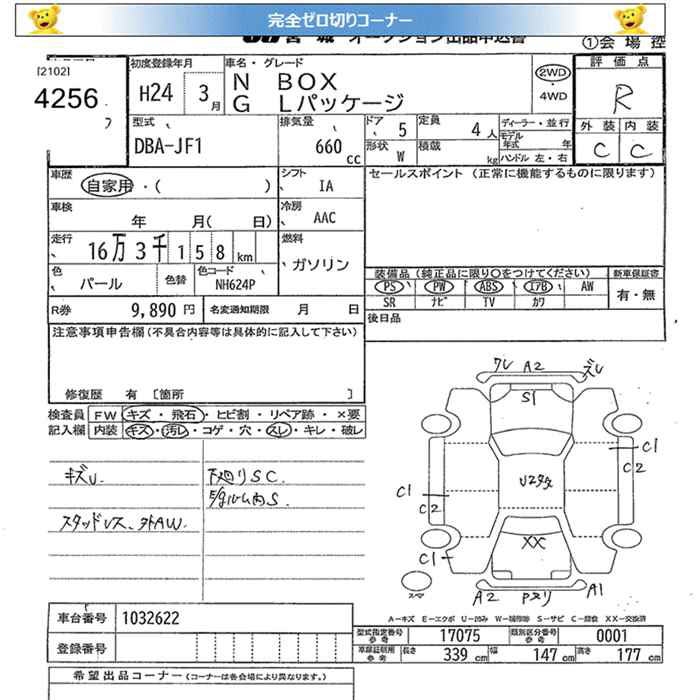 完全ゼロ切りコーナー
宮城 オークション出品申込書
①会場控
[2102]
4256
初度登録年月
H24 3月
車名・グレード
N BOX
G Lパッケージ
2WD
・4WD
評価点
R
外装 内装
C C
型式
DBA-JF1
排気量
660 cc
ドア 5
定員 4人
形状 W
積載 kg
ディーラー・並行
モデル年式 年
ハンドル 左・右
車歴
自家用・( )
シフト
IA
車検
年 月( 日)
冷房
AAC
走行
16万3千158km
燃料
ガソリン
色
パール
色替
色コード
NH624P
R券
9,890円
名変通知期限 月 日
セールスポイント (正常に機能するものに限ります)
装備品 (純正品に限り○をつけてください)
新車保証書
PS PW ABS エアB AW
SR ナビ TV カワ
有・無
後日品
注意事項申告欄(不具合内容等は具体的に記入して下さい)
修復歴 有 [箇所 ]
検査員 FW キズ・飛石・ヒビ割・リペア跡・×要
記入欄 内装 キズ・汚レ・コゲ・穴・スレ・キレ・破レ
キズU.
下廻りSC.
ルーム内S.
スタッドレス、外AW.
ワレ A2 ズレ
S1
C1
C2
C1
C2
XX
C1
A2 A1
スペア
A−キズ E−エクボ U−凹み W−補修跡 S−サビ C−腐食 XX−交換済
車台番号 1032622
登録番号
型式指定番号 参考 17075
類別区分番号 参考 0001
車庫証明用 参考 長さ 339cm 幅 147cm 高さ 177cm
希望出品コーナー (コーナーは各会場により異なります。)